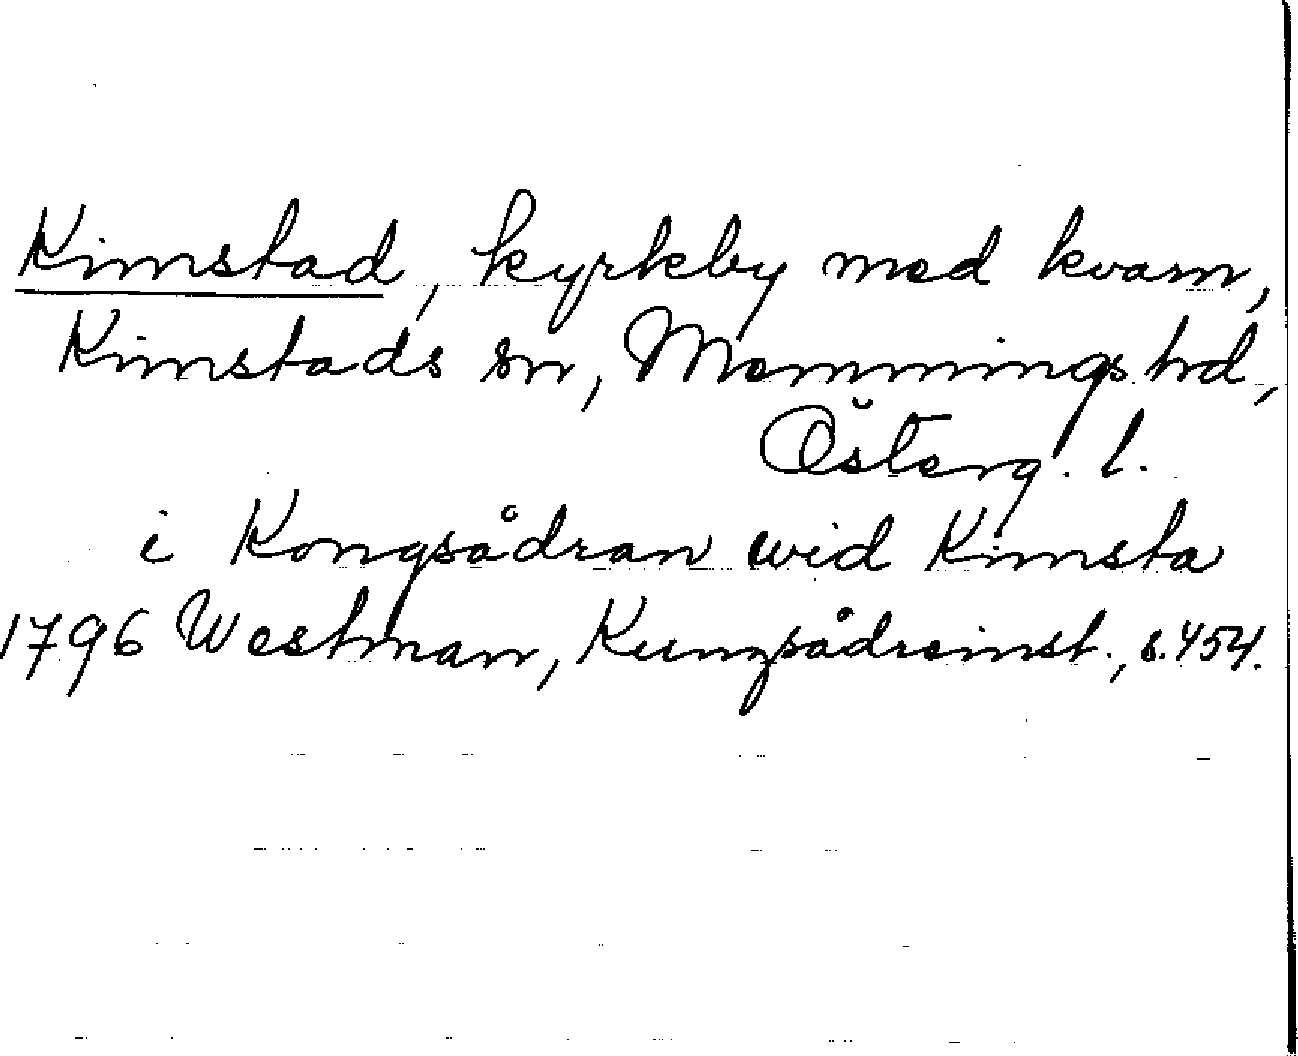 Kimstad, kyrkby med kvarn,
Kimstads sn, Memmings hd,
Österg. l.
i Kongsådran wid Kimsta
1796 Westman, Kungsådreinst., s. 454.